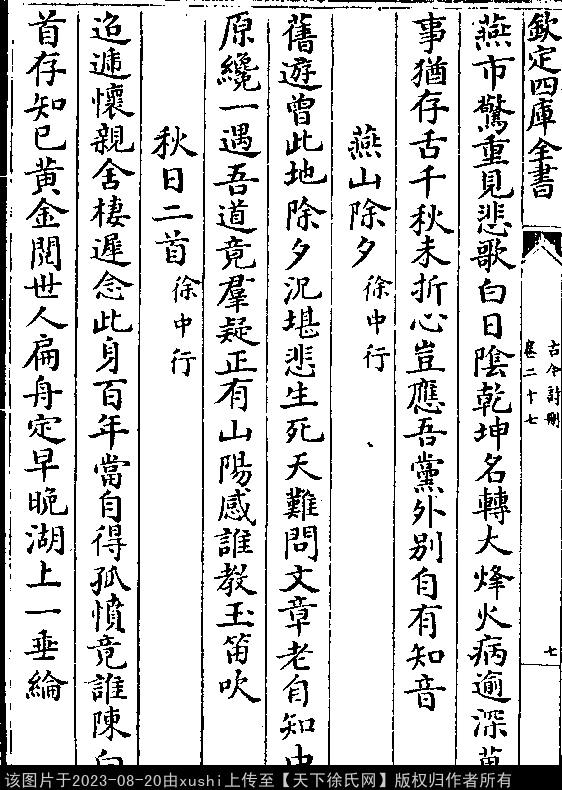 欽定四庫全書
古今詩刪
卷二十七
七
燕市驚重見悲歌白日陰乾坤名轉大烽火病逾深萬
事猶存舌千秋未折心豈應吾黨外別自有知音
燕山除夕 徐中行
舊遊曾此地除夕況堪悲生死天難問文章老自知中
原纔一遇吾道竟羣疑正有山陽感誰教玉笛吹
秋日二首 徐中行
迢遞懷親舍棲遲念此身百年當自得孤憤竟誰陳白
首存知已黃金閱世人扁舟定早晚湖上一垂綸
该图片于2023-08-20由xushi上传至【天下徐氏网】版权归作者所有